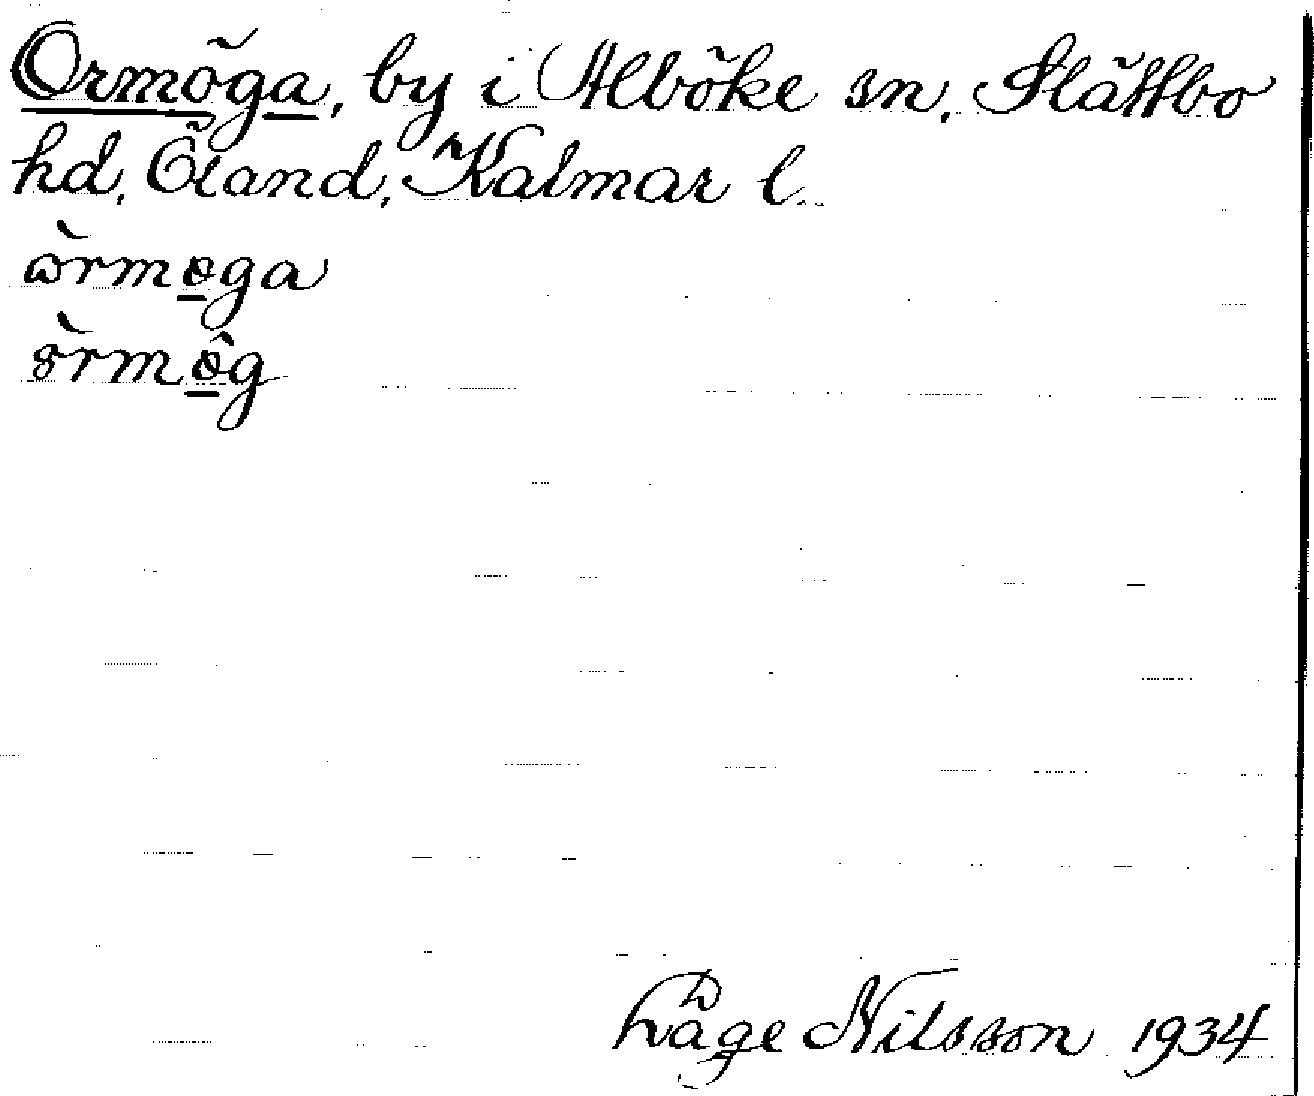 Ormöga, by i Alböke sn, Slättbo
hd, Öland, Kalmar l.
ὼrmɵ̱ga
Nilsson 1934